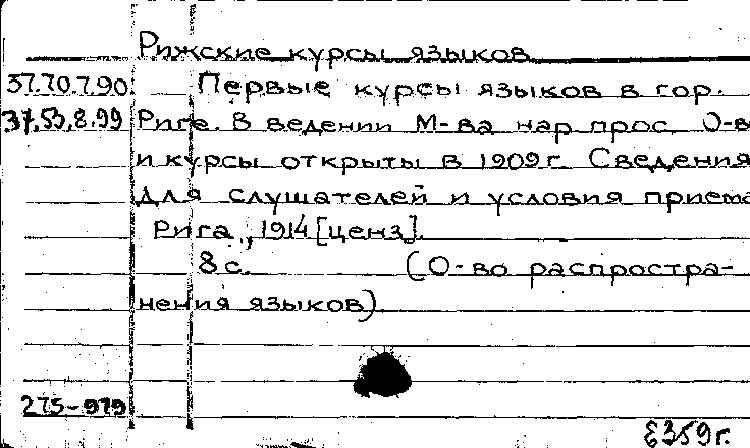 Рижские курсы языков
37.70.7.90. Первые курсы языков в гор.
37.53.8.99 Риге. В ведении М-ва нар прос. О-в
и курсы открыты в 1909г. Сведения
для слушателей и условия приема
Рига, 1914 [ценз].
8 с. (О-во распростра-
нения языков).
275-979
Е359г.